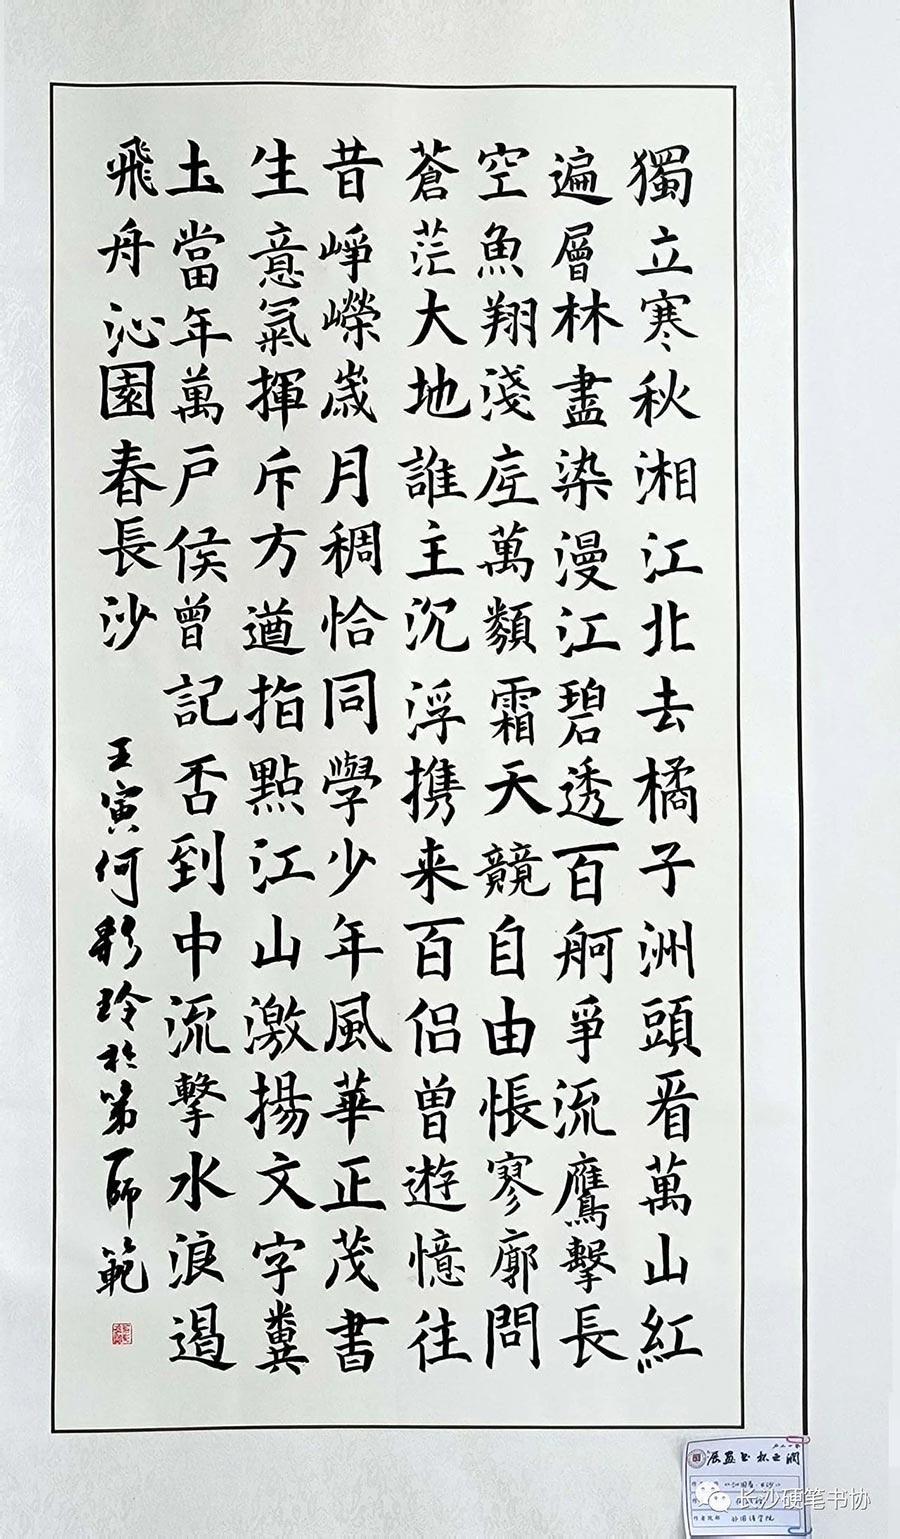 獨立寒秋湘江北去橘子洲頭看萬山紅
遍層林盡染漫江碧透百舸爭流鷹擊長
空魚翔淺底萬類霜天競自由悵寥廓問
蒼茫大地誰主沉浮携来百侣曾遊憶往
昔崢嶸歲月稠恰同學少年風華正茂書
生意氣揮斥方遒指點江山激揚文字糞
土當年萬户侯曾記否到中流擊水浪遏
飛舟沁園春長沙
壬寅何彩玲於第一師範
《沁园春·长沙》
作者院部 外国语学院
长沙硬笔书协